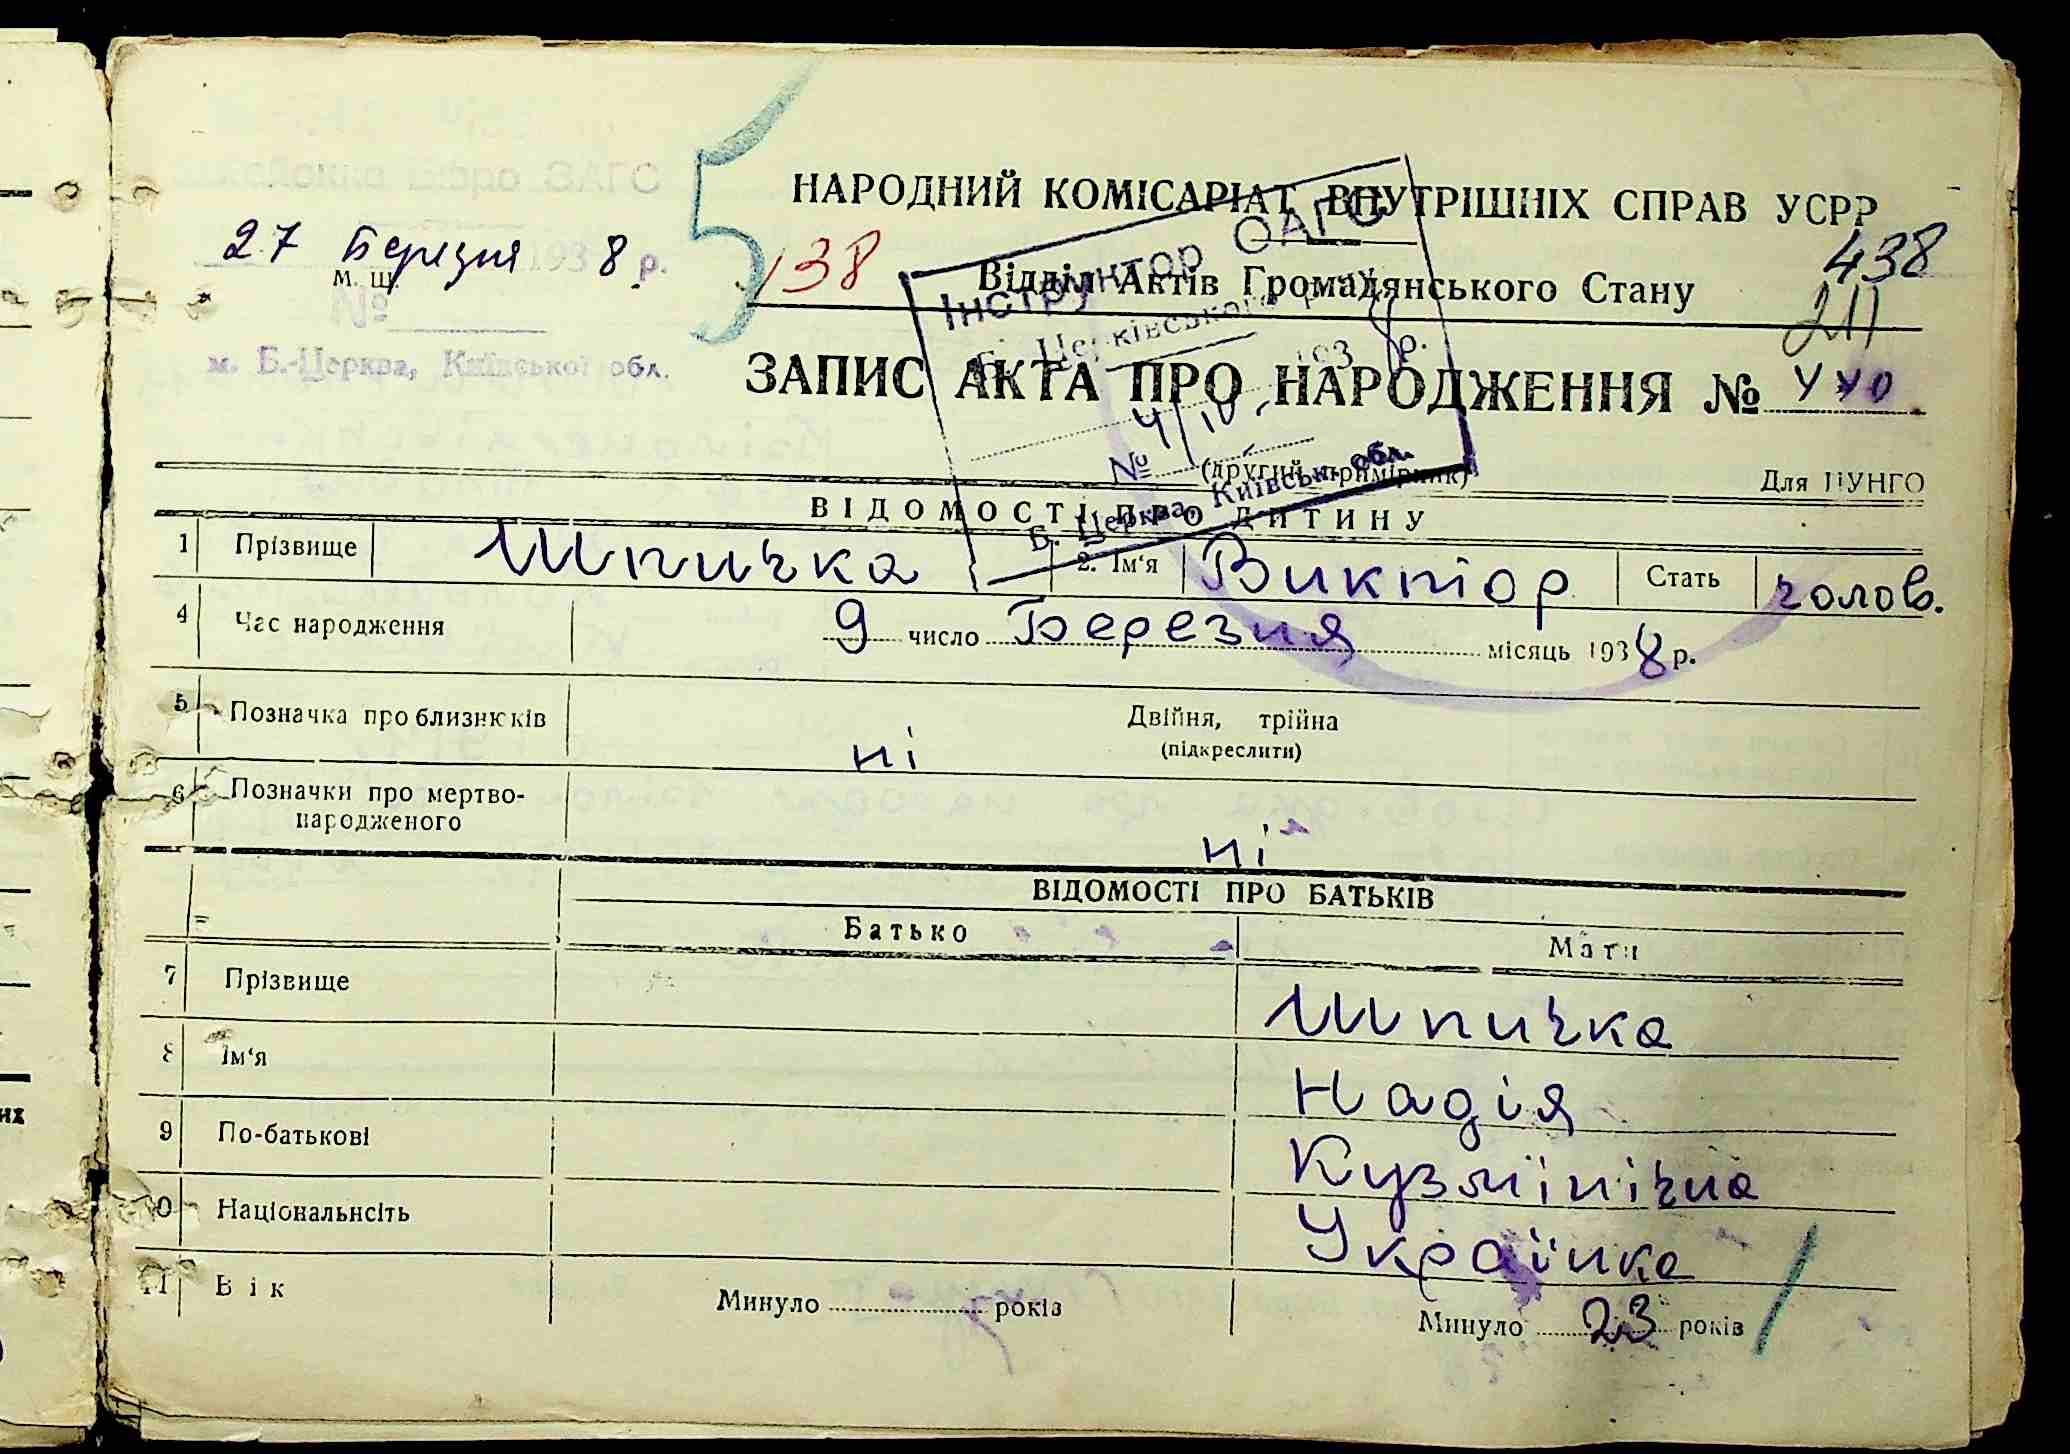 НАРОДНИЙ КОМІСАРІАТ ВНУТРІШНІХ СПРАВ УСРР
27 Березня 1938 р.
М. Ш.
138
438
Відділ Актів Громадянського Стану
211
Інструктор ОАГС
Б. Церківського
193 8 р.
№ 4/IV
Б. Церква, Київськ. обл.
№
м. Б.-Церква, Київської обл.
ЗАПИС АКТА ПРО НАРОДЖЕННЯ №
(другий примірник)
Для ЦУНГО
ВІДОМОСТІ ПРО ДИТИНУ
1 Прізвище Шпичка 2. Ім'я Виктор Стать чолов.
4 Час народження 9 число Березня місяць 1938 р.
5 Позначка про близнюків ні Двійня, трійна
(підкреслити)
6 Позначки про мертво-
народженого ні
ВІДОМОСТІ ПРО БАТЬКІВ
Батько Мати
7 Прізвище Шпичка
8 Ім'я Надія
9 По-батькові Кузмінічна
10 Національнсіть Украінка
11 Вік Минуло років Минуло 23 років
их